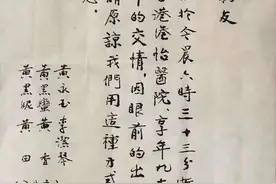 友
於今晨六時三十三分
港港怡醫院、享年九
的交情，因眼前的出
原諒我們用這種方式
黃永玉 李潔琴
黃黑蠻 黃香
黃黑妮 黃田